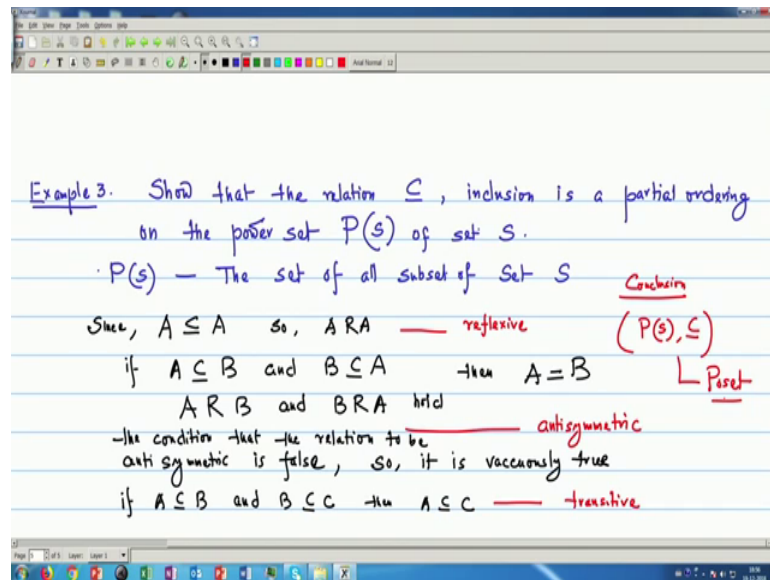 File Edit View Page Tools Options Help
Arial Normal 12
Example 3. Show that the relation ⊆, inclusion is a partial ordering
on the power set P(S) of set S.
P(S) — The set of all subset of Set S
Since, A ⊆ A so, A R A — reflexive
if A ⊆ B and B ⊆ A then A = B
A R B and B R A hold
— antisymmetric
the condition that the relation to be
anti symmetric is false, so, it is vaccuously true
if A ⊆ B and B ⊆ C then A ⊆ C — transitive
Conclusion
(P(S), ⊆)
Poset
Page 5 of 5 Layer: Layer 1
18:56